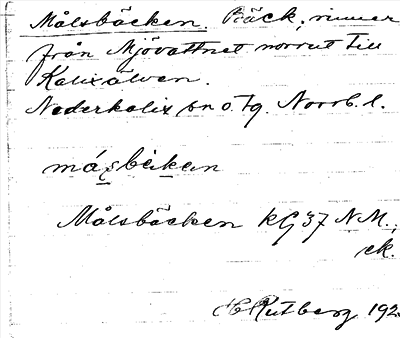 Målsbäcken. Bäck, rinner
från Mjövattnet norrut till
Kalixälven.
Nederkalix sn o. tg. Norrb. l.
Målsbäcken KG 37 N.M.,
ek.
H Rutberg 192